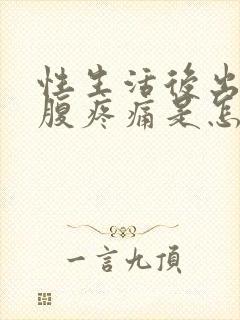 性生活後出
腹疼痛是怎
一言九頂